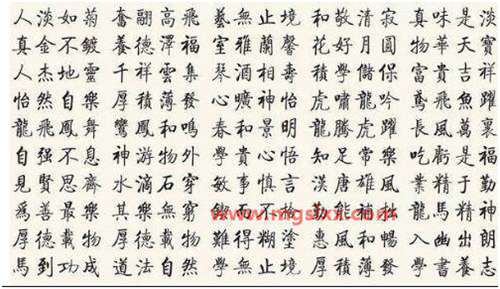 人淡如菊 奮翮高飛 藝無止境 和敬清寂 真味是淡
真金不鍍 養德澤福 室雅蘭馨 花好月圓 物華天寶
人杰地靈 千祥雲集 琴 相壽 學儲 富貴吉祥
怡然自樂 厚積薄發 曠神怡 虎嘯龍吟 鳶飛魚躍
龍飛鳳舞 鸞鳳和鳴 春和景明 龍騰虎躍 長風萬里
自强不息 神游物外 學貴心悟 知足常樂 吃虧是福
見賢思齊 水滴石穿 敏事慎言 漢唐雄風 業精于勤
爲善最樂 其樂無窮 而不 能補 馬精神
厚德載物 其德 物 難得糊塗 惠風和暢 入幽出朗
馬到功成 道法自然 學無止境 厚積薄發 學書養志